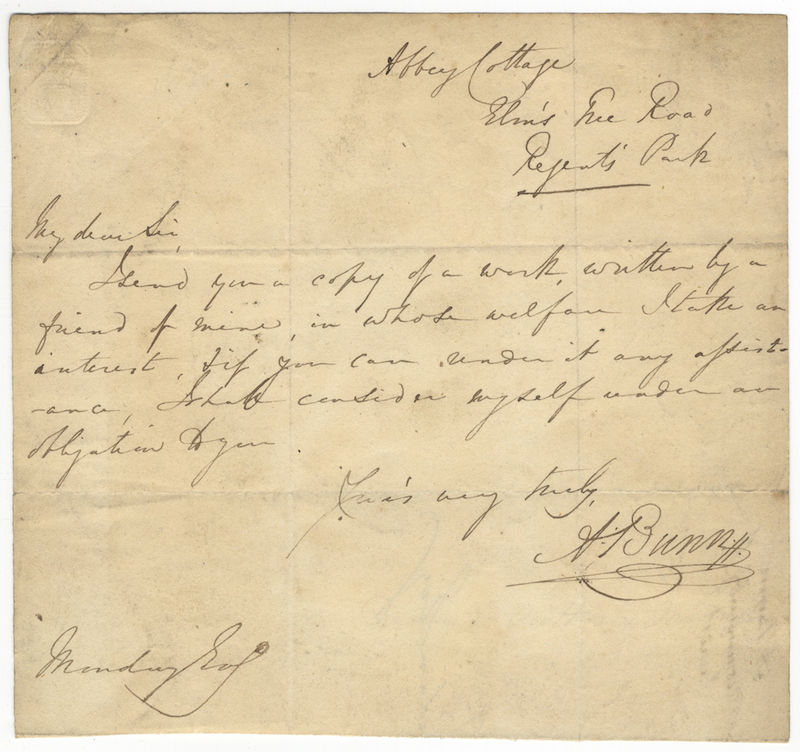 Abbey Cottage
Elm's Tree Road
Regent's Park
My dear Sir,
I send you a copy of a work, written by a
friend of mine, in whose welfare I take an
interest, & if you can render it any assist-
-ance, I shall consider myself under an
obligation to you
Your's very truly,
A. Bunn
Monday Evg
BATH